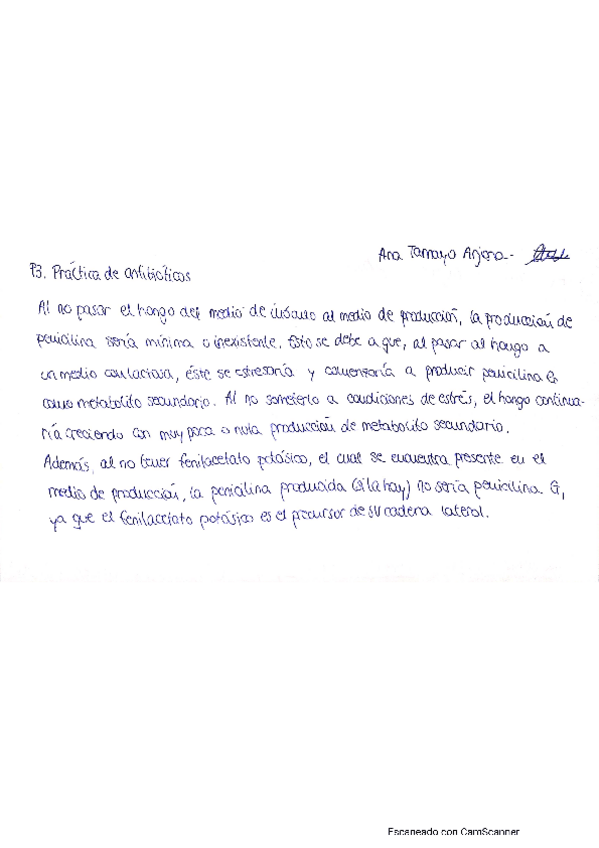 Ana Tamayo Arjona.-
P3. Práctica de antibióticos
Al no pasar el hongo del medio de inóculo al medio de producción, la producción de
penicilina sería mínima o inexistente. Esto se debe a que, al pasar al hongo a
un medio con lactosa, éste se estresaría y comenzaría a producir penicilina G
como metabolito secundario. Al no someterlo a condiciones de estrés, el hongo continua-
ría creciendo con muy poca o nula producción de metabolito secundario.
Además, al no tener fenilacetato potásico, el cual se encuentra presente en el
medio de producción, la penicilina producida (si la hay) no sería penicilina G,
ya que el fenilacetato potásico es el precursor de su cadena lateral.
Escaneado con CamScanner